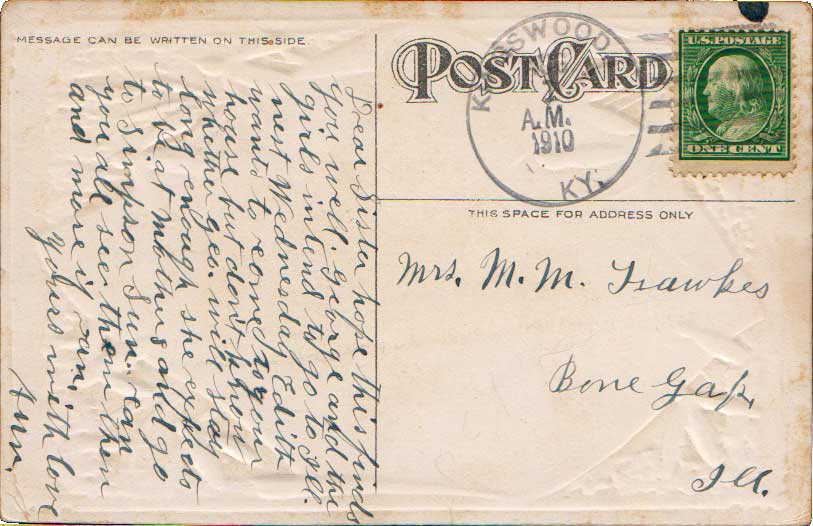 MESSAGE CAN BE WRITTEN ON THIS SIDE
POST CARD
KINGSWOOD
A.M.
1910
KY.
U.S. POSTAGE
ONE CENT
THIS SPACE FOR ADDRESS ONLY
Mrs. M. M. Frawkes
Bone Gap,
Ill.
Dear Sister hope this finds
you well. George and the
girls intend to go to Ill.
next Wednesday Edith
wants to come to your
house but don't know
whether geo. will stay
long enough she expects
to be at Mothers and go
to Simpson Sun. can
you all see them then
and more if can,
yours with love
Ann.